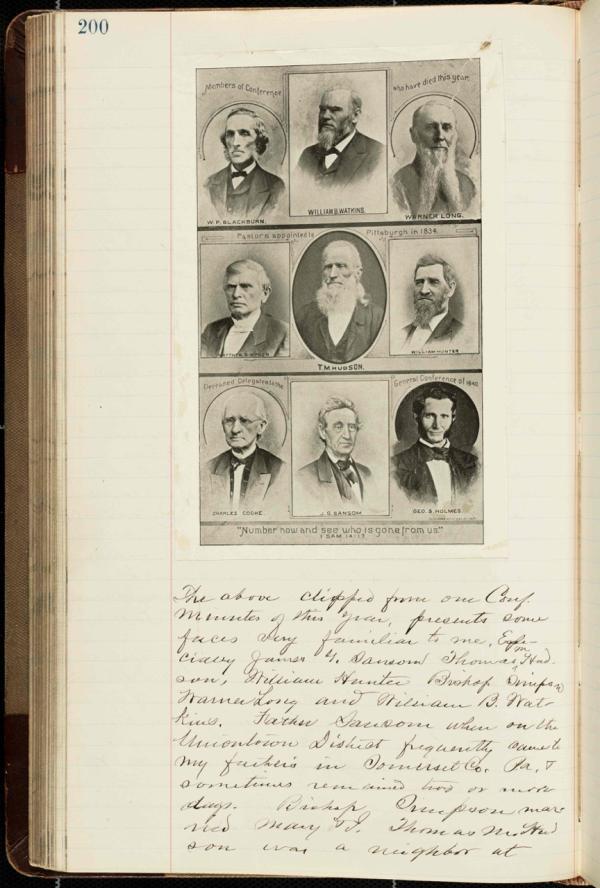 200
Members of Conference who have died this year.
W. P. BLACKBURN.
WILLIAM B. WATKINS.
WARNER LONG.
Pastors appointed to Pittsburgh in 1834.
MATTHEW SIMPSON
T. M. HUDSON.
WILLIAM HUNTER
Deceased Delegates to the General Conference of 1840.
CHARLES COOKE.
J. G. SANSOM
GEO. S. HOLMES.
"Number now and see who is gone from us."
1 SAM. 14:17.
The above clipped from our Conf.
Minutes of this year, presents some
faces very familiar to me, Espe-
cially James G. Sansom Thomas M Hud-
son, William Hunter Bishop Simpson
Warner Long and William B. Wat-
kins. Father Sansom when on the
Uniontown District frequently came to
my father's in Somerset Co. Pa. &
sometimes remained two or more
days. Bishop Simpson mar-
ried Mary & I. Thomas M. Hud
son was a neighbor at